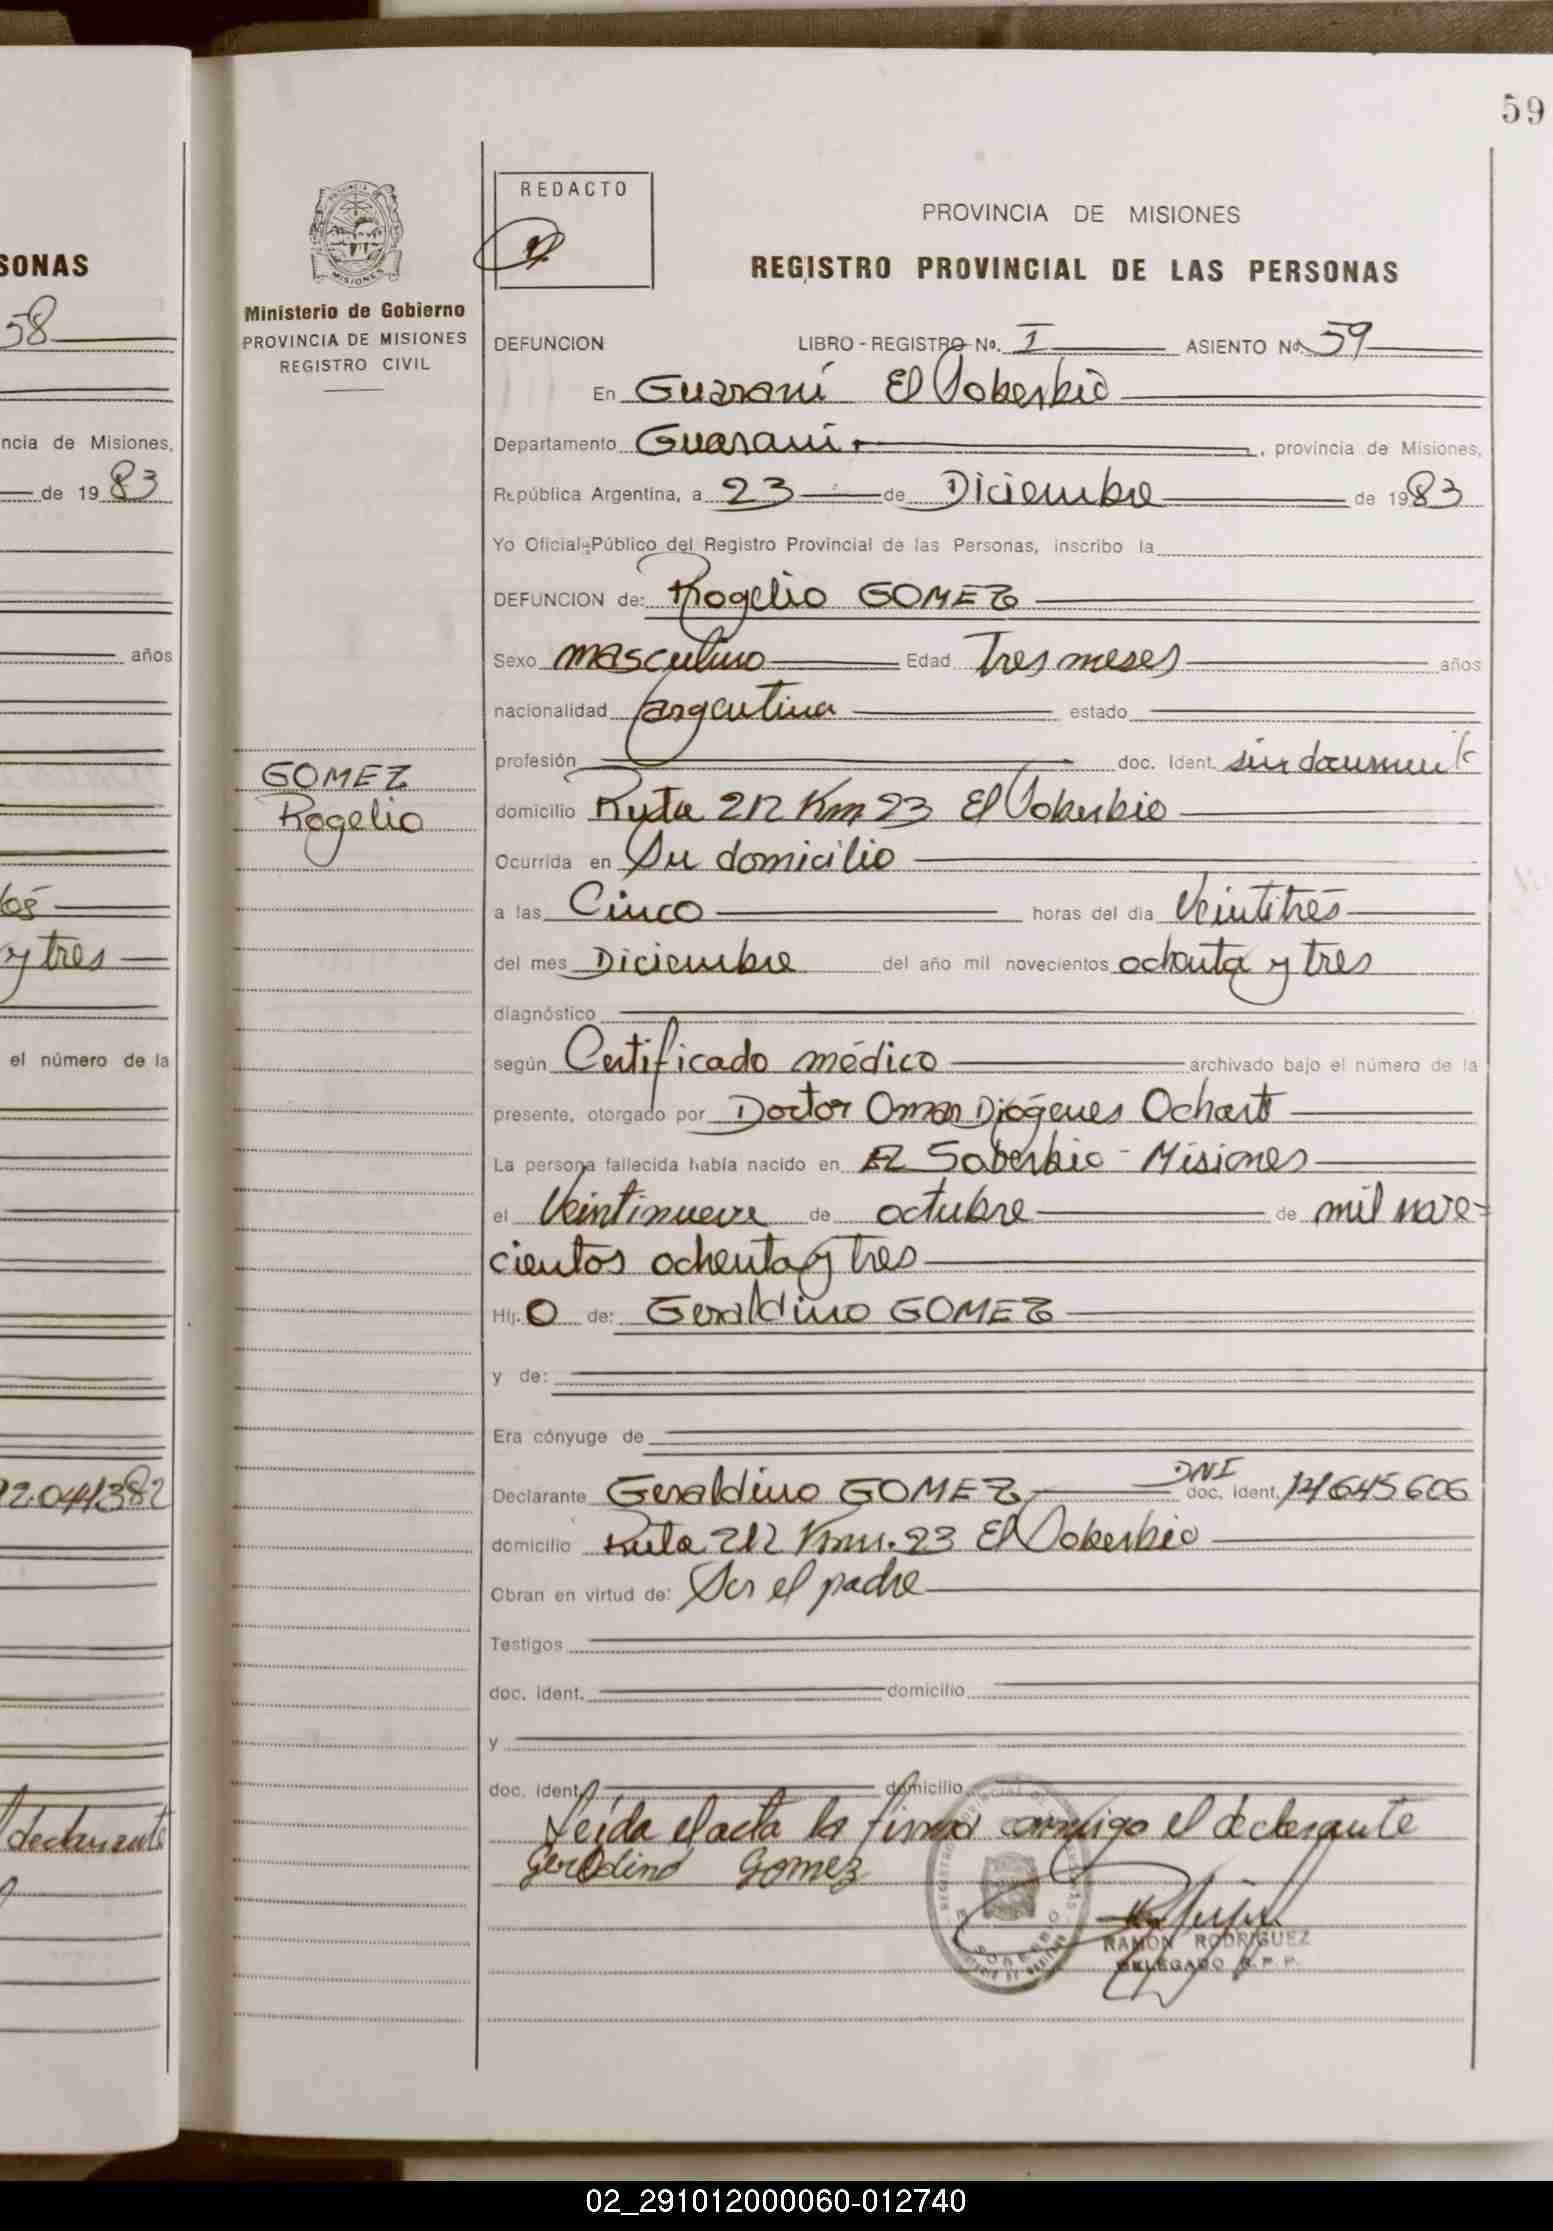 59
SONAS
58
ncia de Misiones,
de 19 83
años
tos
y tres
el número de la
92.041382
declarante
PROVINCIA DE
MISIONES
Ministerio de Gobierno
PROVINCIA DE MISIONES
REGISTRO CIVIL
GOMEZ
Rogelio
REDACTO
PROVINCIA DE MISIONES
REGISTRO PROVINCIAL DE LAS PERSONAS
DEFUNCION LIBRO - REGISTRO No. I ASIENTO No. 59
En Guaraní El Soberbio
Departamento Guaraní, provincia de Misiones,
República Argentina, a 23 de Diciembre de 1983
Yo Oficial Público del Registro Provincial de las Personas, inscribo la
DEFUNCION de: Rogelio GOMEZ
Sexo masculino Edad Tres meses años
nacionalidad argentina estado
profesión doc. Ident. sin document
domicilio Ruta 212 Km 23 El Soberbio
Ocurrida en Su domicilio
a las Cinco horas del dia Veintitrés
del mes Diciembre del año mil novecientos ochenta y tres
diagnóstico
según Certificado médico archivado bajo el número de la
presente, otorgado por Doctor Omar Diógenes Ochart
La persona fallecida había nacido en El Soberbio - Misiones
el Veintinueve de octubre de mil nove=
cientos ochenta y tres
Hij. O de: Geraldino GOMEZ
y de:
Era cónyuge de
Declarante Geraldino GOMEZ DNI doc. ident. 14645606
domicilio Ruta 212 Km. 23 El Soberbio
Obran en virtud de: Ser el padre
Testigos
doc. ident. domicilio
y
doc. ident. domicilio
Leída el acta la firma conmigo el declarante
Geraldino Gomez
RAMON RODRIGUEZ
DELEGADO R. P. P.
02_291012000060-012740